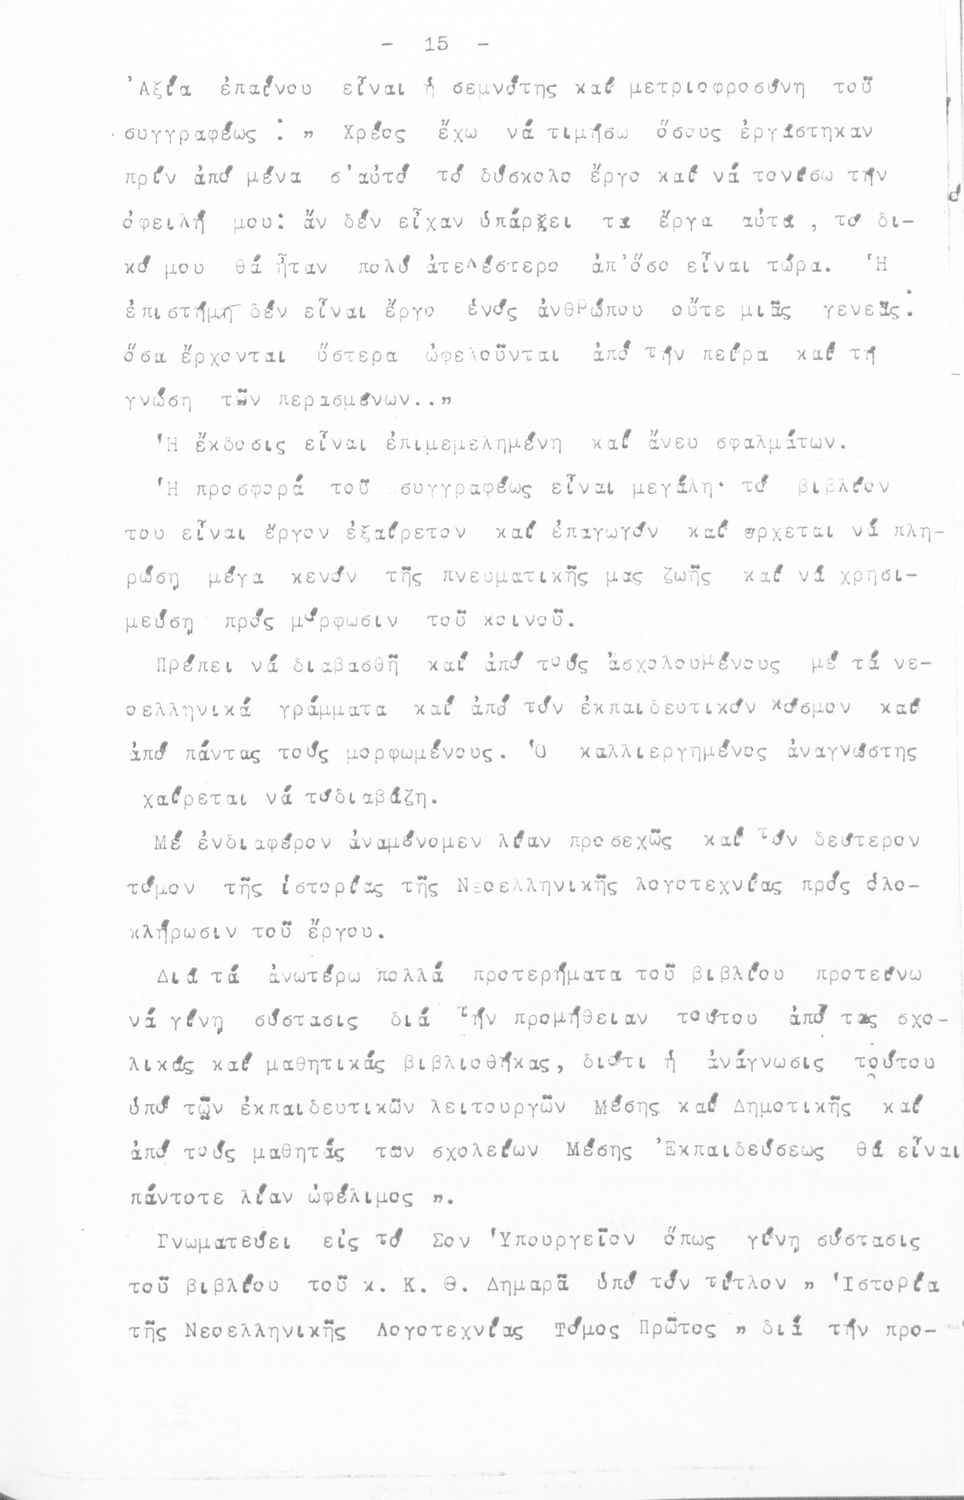 - 15 -
Ἀξία ἐπαίνου εἶναι ἡ σεμνότης καί μετριοφροσύνη τοῦ
συγγραφέως : " Χρέος ἔχω νά τιμήσω ὅσους ἐργάστηκαν
πρίν ἀπό μένα σ'αὐτό τό δύσκολο ἔργο καί νά τονίσω τήν
ὀφειλή μου: ἄν δέν εἶχαν ὑπάρξει τά ἔργα αὐτά , τό δι-
κό μου θά ἦταν πολύ ἀτελέστερο ἀπ'ὅσο εἶναι τώρα. Ἡ
ἐπιστήμη δέν εἶναι ἔργο ἑνός ἀνθρώπου οὔτε μιᾶς γενεᾶς:
ὅσα ἔρχονται ὕστερα ὠφελοῦνται ἀπό τήν πεῖρα καί τή
γνώση τῶν περασμένων.."
Ἡ ἔκδοσις εἶναι ἐπιμεμελημένη καί ἄνευ σφαλμάτων.
Ἡ προσφορά τοῦ συγγραφέως εἶναι μεγάλη· τό βιβλίον
του εἶναι ἔργον ἐξαίρετον καί ἐπαγωγόν καί ερχεται νά πλη-
ρώση μέγα κενόν τῆς πνευματικῆς μας ζωῆς καί νά χρησι-
μεύση πρός μόρφωσιν τοῦ κοινοῦ.
Πρέπει νά διαβασθῆ καί ἀπό τούς ἀσχολουμένους μέ τά νε-
οελληνικά γράμματα καί ἀπό τόν ἐκπαιδευτικόν κόσμον καί
ἀπό πάντας τούς μορφωμένους. Ὁ καλλιεργημένος ἀναγνώστης
χαίρεται νά τόδιαβάζη.
Μέ ἐνδιαφέρον ἀναμένομεν λίαν προσεχῶς καί τόν δεύτερον
τόμον τῆς ἱστορίας τῆς Νεοελληνικῆς λογοτεχνίας πρός ὁλο-
κλήρωσιν τοῦ ἔργου.
Διά τά ἀνωτέρω πολλά προτερήματα τοῦ βιβλίου προτείνω
νά γίνη σύστασις διά τήν προμήθειαν τούτου ἀπό τας σχο-
λικάς καί μαθητικάς βιβλιοθήκας, διότι ἡ ἀνάγνωσις τούτου
ὑπό τῶν ἐκπαιδευτικῶν λειτουργῶν Μέσης καί Δημοτικῆς καί
ἀπό τούς μαθητάς των σχολείων Μέσης Ἐκπαιδεύσεως θά εἶναι
πάντοτε λίαν ὠφέλιμος ".
Γνωματεύει εἰς τό Σον Ὑπουργεῖον ὅπως γίνη σύστασις
τοῦ βιβλίου τοῦ κ. Κ. Θ. Δημαρᾶ ὑπό τόν τίτλον " Ἱστορία
τῆς Νεοελληνικῆς Λογοτεχνίας Τόμος Πρῶτος " διά τήν προ-